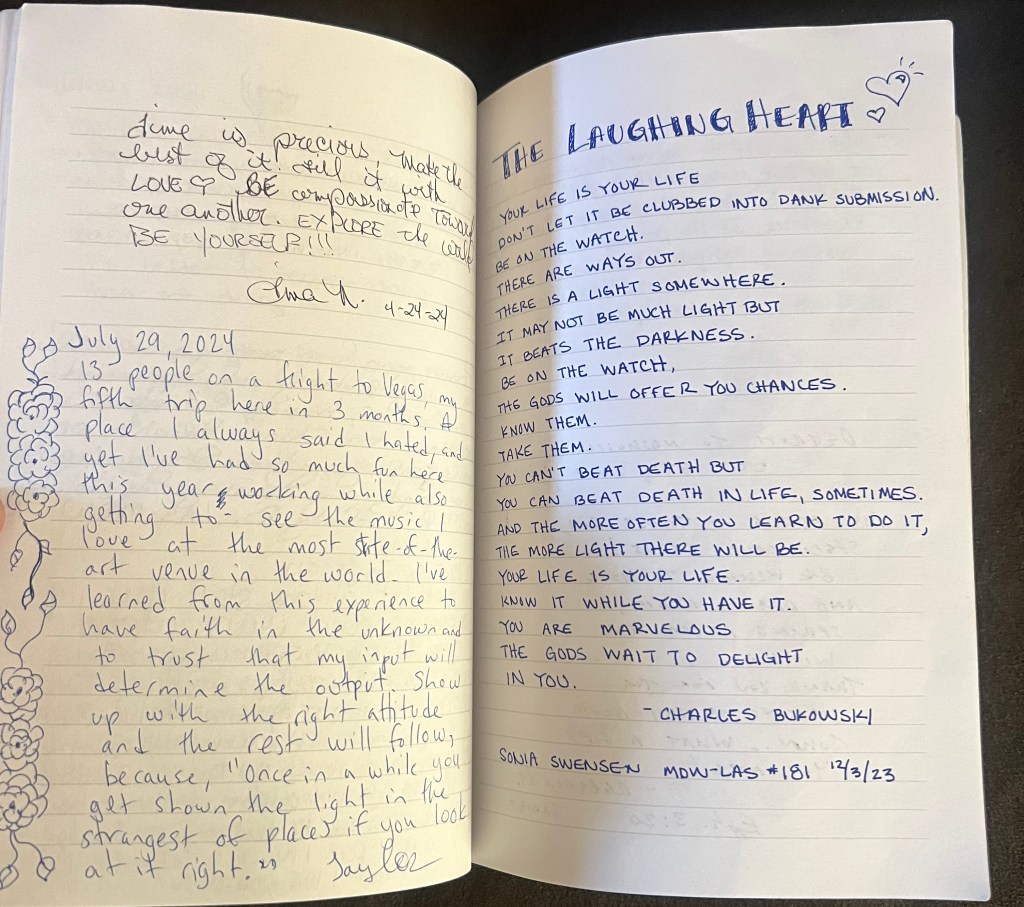 time is precious, make the
best of it! fill it with
LOVE ♡ BE compassionate toward
one another. EXPLORE the world
BE YOURSELF!!!
4-24-24
July 29, 2024
13 people on a flight to Vegas, my
fifth trip here in 3 months. A
place I always said I hated, and
yet I've had so much fun here
this year working while also
getting to see the music I
love at the most state-of-the-
art venue in the world. I've
learned from this experience to
have faith in the unknown and
to trust that my input will
determine the output. Show
up with the right attitude
and the rest will follow,
because, "Once in a while you
get shown the light in the
strangest of places if you look
at it right."
Taylor
THE LAUGHING HEART
YOUR LIFE IS YOUR LIFE
DON'T LET IT BE CLUBBED INTO DANK SUBMISSION.
BE ON THE WATCH.
THERE ARE WAYS OUT.
THERE IS A LIGHT SOMEWHERE.
IT MAY NOT BE MUCH LIGHT BUT
IT BEATS THE DARKNESS.
BE ON THE WATCH,
THE GODS WILL OFFER YOU CHANCES.
KNOW THEM.
TAKE THEM.
YOU CAN'T BEAT DEATH BUT
YOU CAN BEAT DEATH IN LIFE, SOMETIMES.
AND THE MORE OFTEN YOU LEARN TO DO IT,
THE MORE LIGHT THERE WILL BE.
YOUR LIFE IS YOUR LIFE.
KNOW IT WHILE YOU HAVE IT.
YOU ARE MARVELOUS
THE GODS WAIT TO DELIGHT
IN YOU.
- CHARLES BUKOWSKI
SONIA SWENSEN MDW-LAS #181 12/3/23